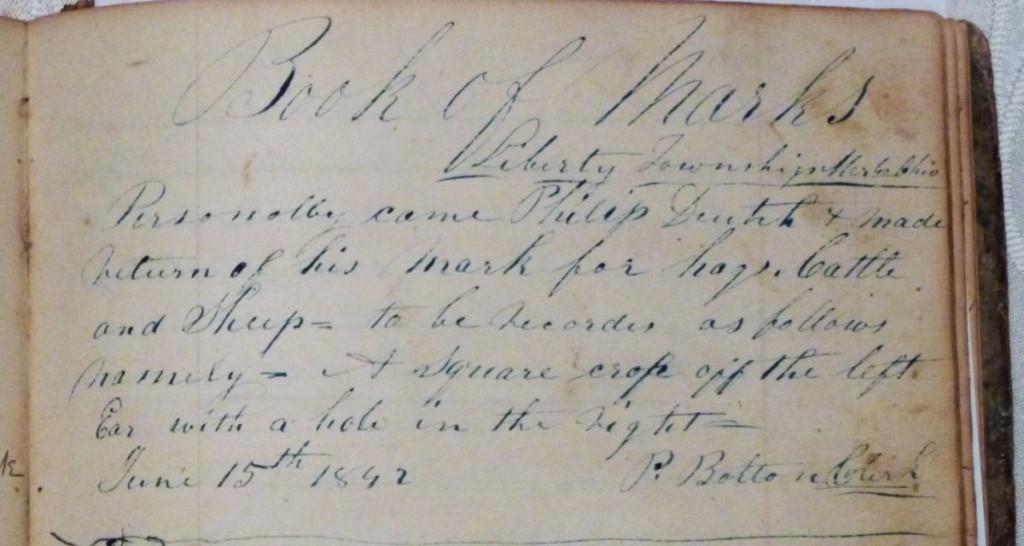 Book of Marks
Liberty Township Ohio
Personolly came Philip Deutch & made
return of his Mark for hogs. Cattle
and Sheep = to be recorded as follows
namely = A square crop off the left
Ear with a hole in the right =
June 15th 1842
P. Bolton Clerk